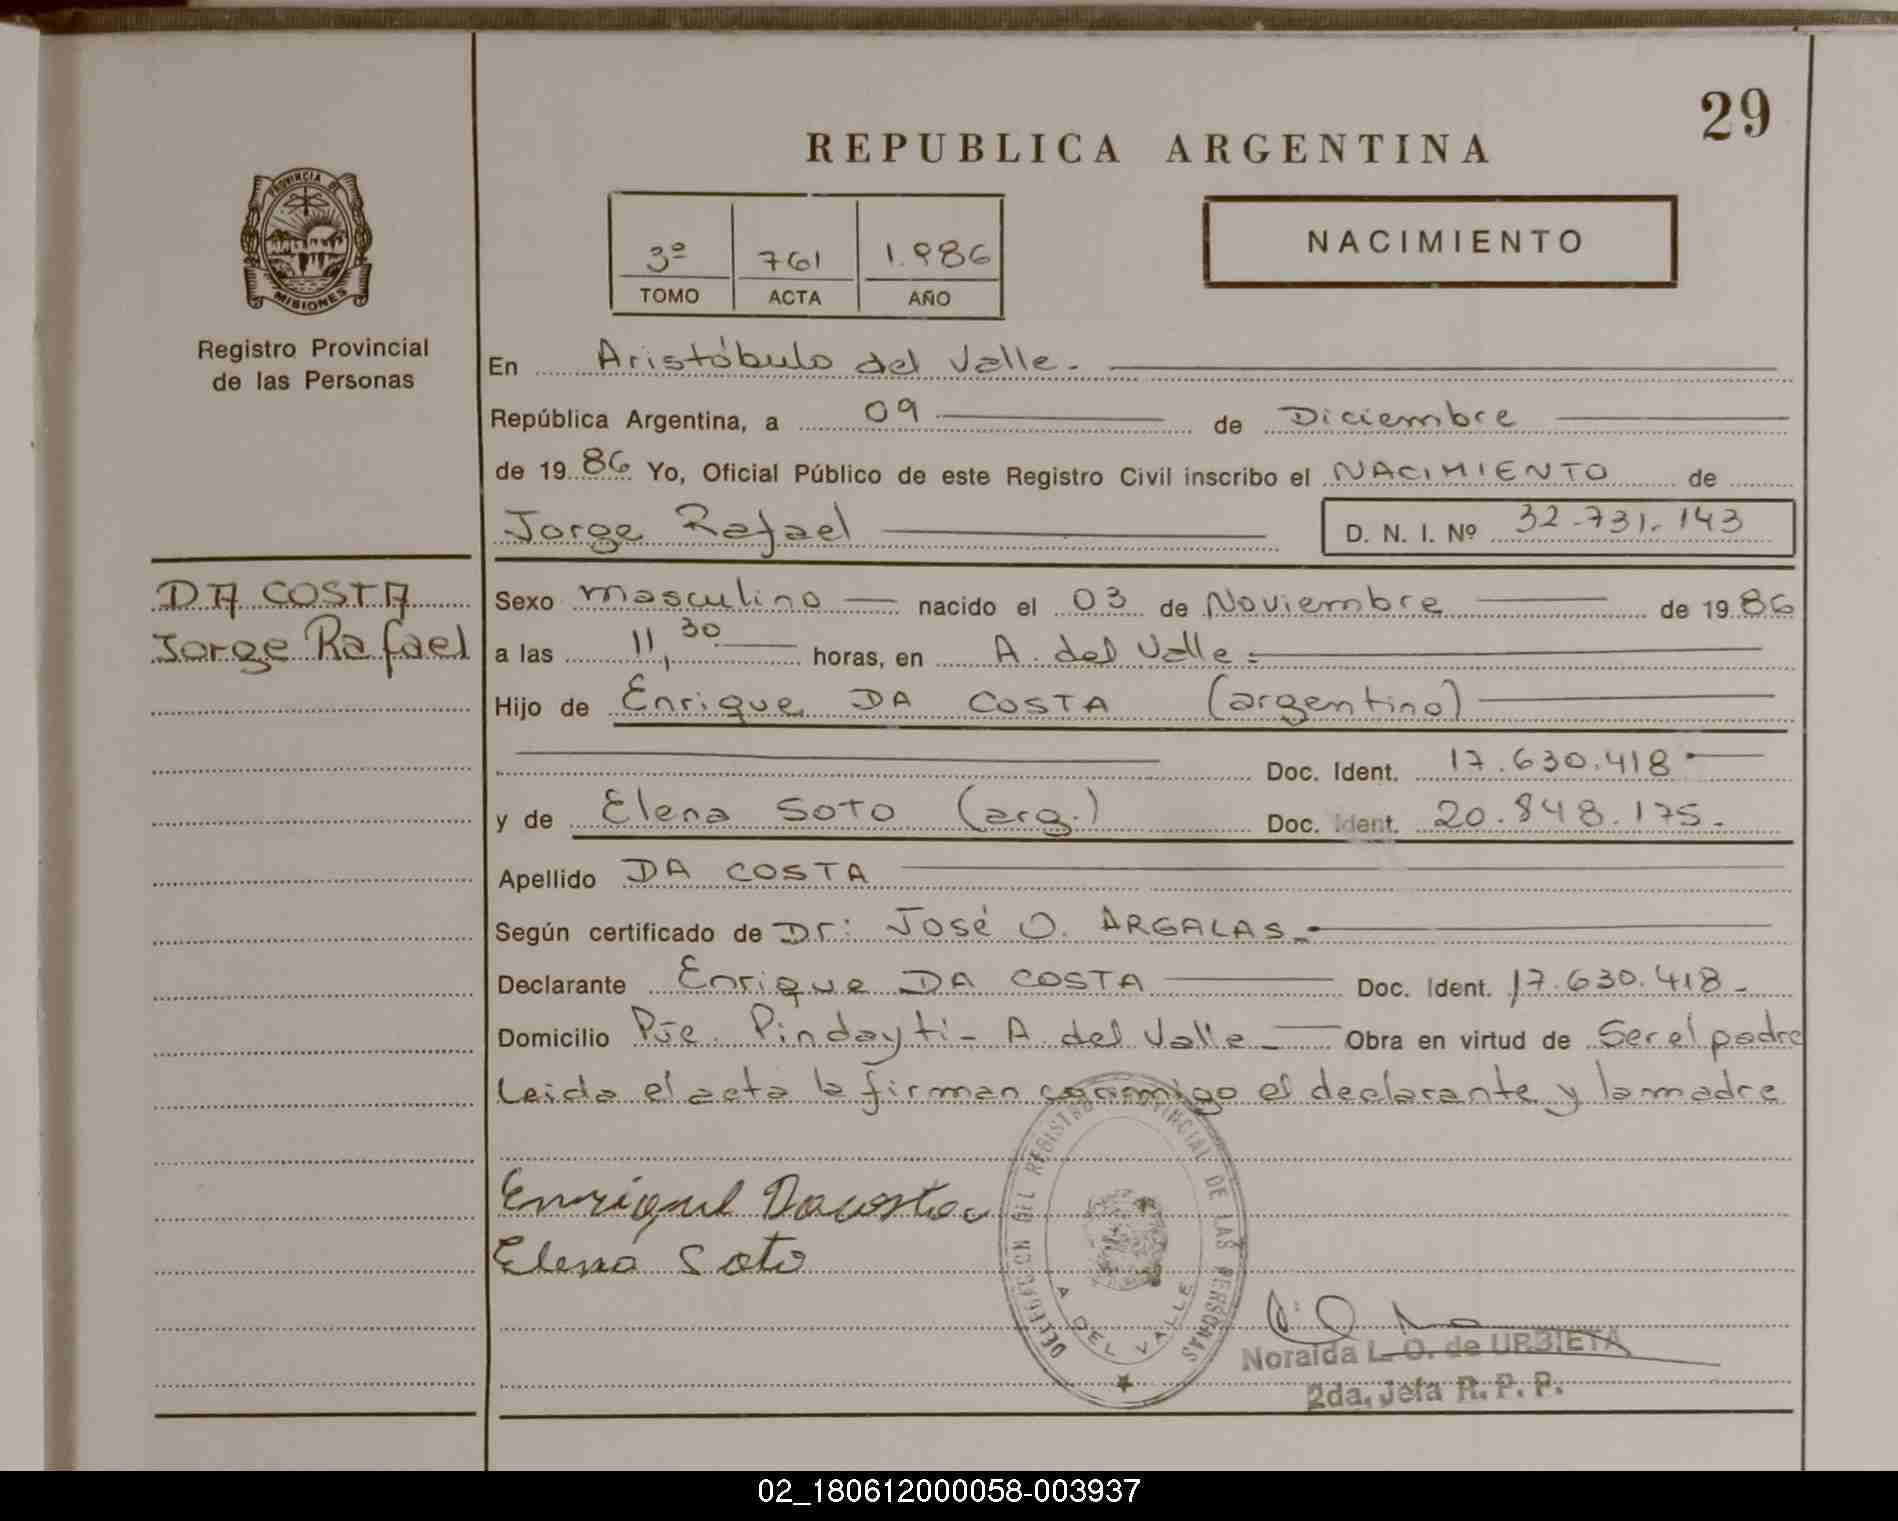 29
REPUBLICA ARGENTINA
PROVINCIA DE
MISIONES
Registro Provincial
de las Personas
3º 761 1.986
TOMO ACTA AÑO
NACIMIENTO
En Aristóbulo del Valle.
República Argentina, a 09 de Diciembre
de 1986 Yo, Oficial Público de este Registro Civil inscribo el NACIMIENTO de
Jorge Rafael D. N. I. Nº 32.731.143
DA COSTA
Jorge Rafael
Sexo masculino nacido el 03 de Noviembre de 1986
a las 11,30 horas, en A. del Valle.
Hijo de Enrique DA COSTA (argentino)
Doc. Ident. 17.630.418
y de Elena SOTO (arg.) Doc. Ident. 20.848.175.
Apellido DA COSTA
Según certificado de Dr: José O. ARGALAS.
Declarante Enrique DA COSTA Doc. Ident. 17.630.418.
Domicilio Pje. Pindayti - A. del Valle Obra en virtud de Ser el padre
Leida el acta la firman conmigo el declarante y la madre
Enrique Dacosta
Elena Soto
DELEGACION DEL REGISTRO PROVINCIAL DE LAS PERSONAS
A. DEL VALLE
Noralda L. O. de URBIETA
2da. Jefa R. P. P.
02_180612000058-003937